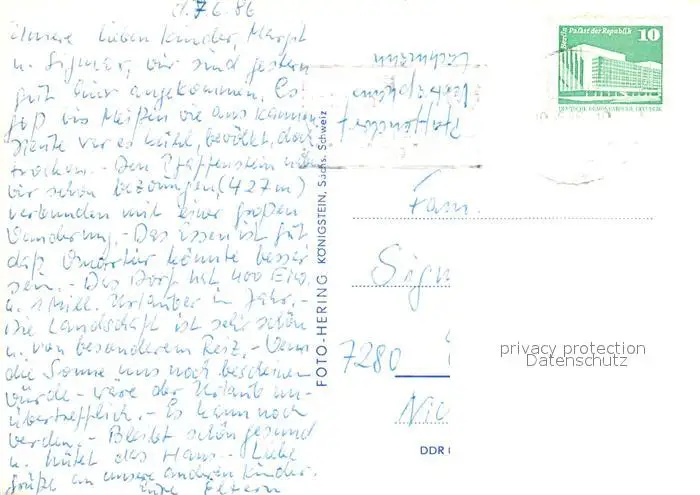 d. 7.6.86
Unsere lieben Kinder, Margit
u. Sigmar, wir sind gestern
gut hier angekommen. Es
goß bis Meißen wie aus Kannen
Heute war es kühl, bewölkt, doch
trocken.- Den Pfaffenstein haben
wir schon bezwungen, (427 m)
verbunden mit einer großen
Wanderung.- Das Essen ist gut,
daß Quartier könnte besser
sein.- Das Dorf hat 400 Einw.
u. 1 Mill. Urlauber im Jahr.-
Die Landschaft ist sehr schön
u. von besonderem Reiz.- Wenn
die Sonne uns noch bescheinen
würde - wäre der Urlaub un-
übertrefflich.- Es kann noch
werden.- Bleibt schön gesund
u. hütet das Haus.- Liebe
Grüße an unsere anderen Kinder.
Eure Eltern
Pfaffendorf
Lachmann
FOTO-HERING KÖNIGSTEIN, Sächs. Schweiz
Berlin Palast der Republik
10
DEUTSCHE DEMOKRATISCHE REPUBLIK
Fam.
Sigm
7280
DDR
privacy protection
Datenschutz